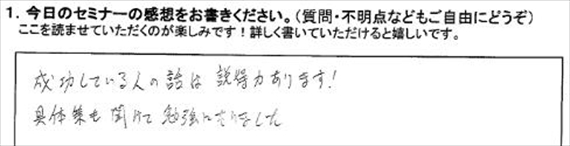 1. 今日のセミナーの感想をお書きください。(質問・不明点などもご自由にどうぞ)
ここを読ませていただくのが楽しみです!詳しく書いていただけると嬉しいです。
成功している人の話は説得力あります!
具体策も聞けて勉強になりました